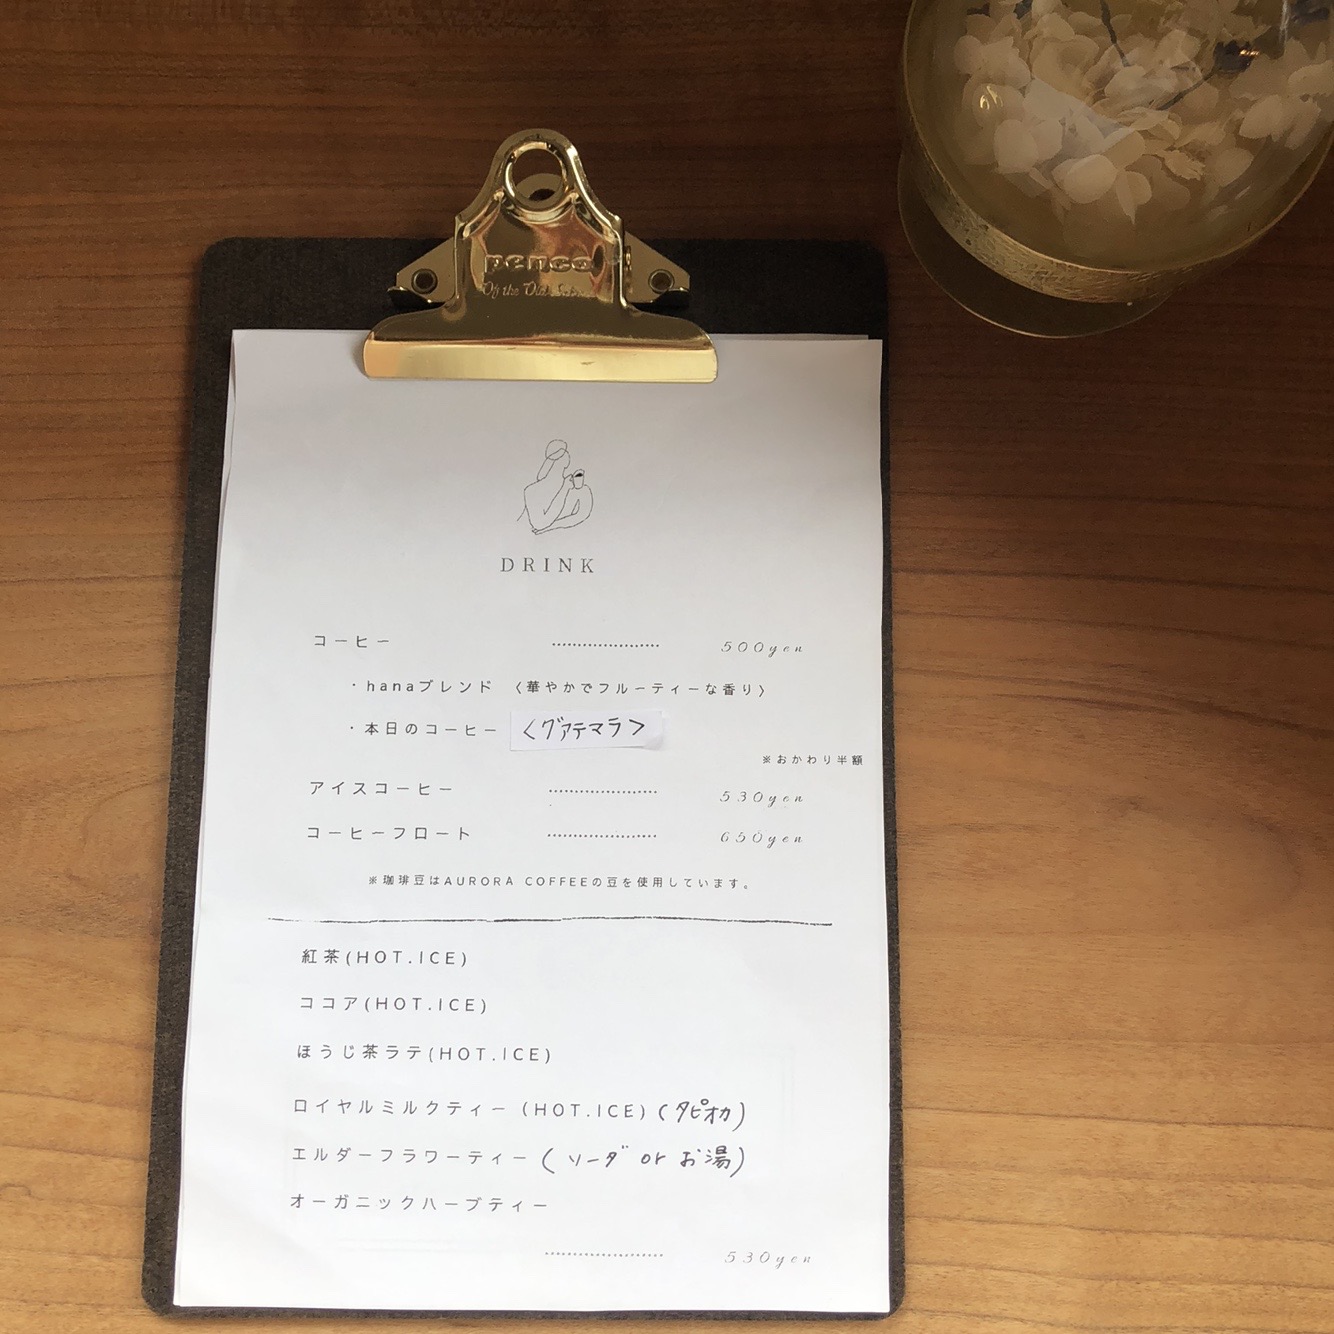 penco
Of the Old School
DRINK
コーヒー ………………… 500yen
・hanaブレンド 〈華やかでフルーティーな香り〉
・本日のコーヒー 〈グァテマラ〉
※おかわり半額
アイスコーヒー ………………… 530yen
コーヒーフロート ………………… 650yen
※珈琲豆はAURORA COFFEEの豆を使用しています。
紅茶(HOT.ICE)
ココア(HOT.ICE)
ほうじ茶ラテ(HOT.ICE)
ロイヤルミルクティー(HOT.ICE)(タピオカ)
エルダーフラワーティー(ソーダ or お湯)
オーガニックハーブティー
………………… 530yen